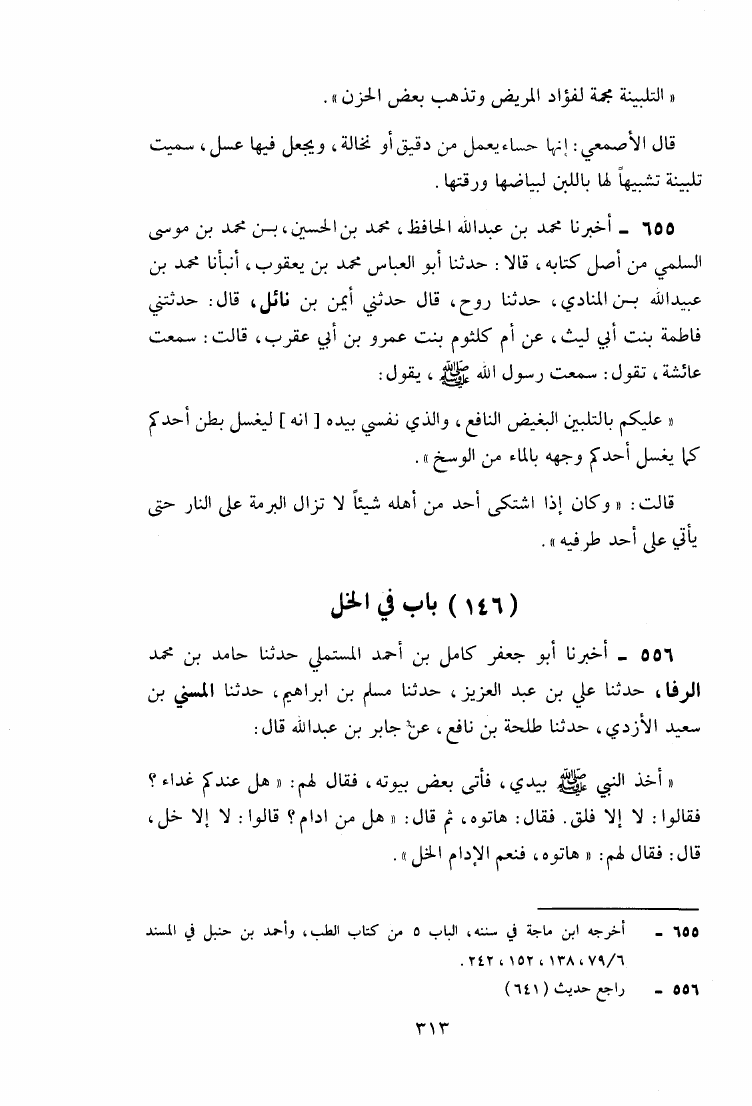 « التلبينة مجمة لفؤاد المريض وتذهب بعض الحزن » .
قال الأصمعي : إنها حساء يعمل من دقيق أو نخالة ، ويجعل فيها عسل ، سميت
تلبينة تشبيهاً لها باللبن لبياضها ورقتها .
٦٥٥ - أخبرنا محمد بن عبدالله الحافظ ، محمد بن الحسين ، بـن محمد بن موسى
السلمي من أصل كتابه ، قالا : حدثنا أبو العباس محمد بن يعقوب ، أنبأنا محمد بن
عبيدالله بـن المنادي ، حدثنا روح ، قال حدثني أيمن بن نائل ، قال : حدثتني
فاطمة بنت أبي ليث ، عن أم كلثوم بنت عمرو بن أبي عقرب ، قالت : سمعت
عائشة ، تقول : سمعت رسول الله ﷺ ، يقول :
« عليكم بالتلبين البغيض النافع ، والذي نفسي بيده [ انه ] ليغسل بطن أحدكم
كما يغسل أحدكم وجهه بالماء من الوسخ » .
قالت : « وكان إذا اشتكى أحد من أهله شيئاً لا تزال البرمة على النار حتى
يأتي على أحد طرفيه » .
( ١٤٦ ) باب في الخل
٥٥٦ - أخبرنا أبو جعفر كامل بن أحمد المستملي حدثنا حامد بن محمد
الرفا ، حدثنا علي بن عبد العزيز ، حدثنا مسلم بن ابراهيم ، حدثنا المسني بن
سعيد الأزدي ، حدثنا طلحة بن نافع ، عن جابر بن عبدالله قال :
« أخذ النبي ﷺ بيدي ، فأتى بعض بيوته ، فقال لهم : « هل عندكم غداء ؟
فقالوا : لا إلا فلق . فقال : هاتوه ، ثم قال : « هل من ادام ؟ قالوا : لا إلا خل ،
قال : فقال لهم : « هاتوه ، فنعم الإدام الخل » .
٦٥٥ - أخرجه ابن ماجة في سننه ، الباب ٥ من كتاب الطب ، وأحمد بن حنبل في المسند
٧٩/٦ ، ١٣٨ ، ١٥٢ ، ٢٤٢ .
٥٥٦ - راجع حديث ( ٦٤١ )
٣١٣